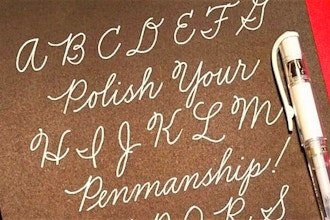 A B C D E F G
Polish Your
H I J K L M
Penmanship!
P Q R S